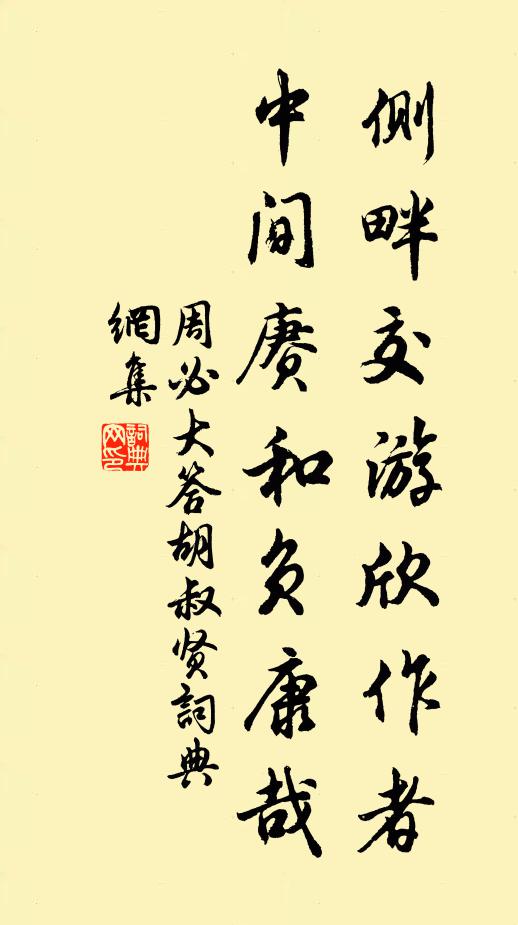 侧畔交游欣作者
中间赓和负康哉
周必大答胡叔贤詞典
網集
詞典
网印